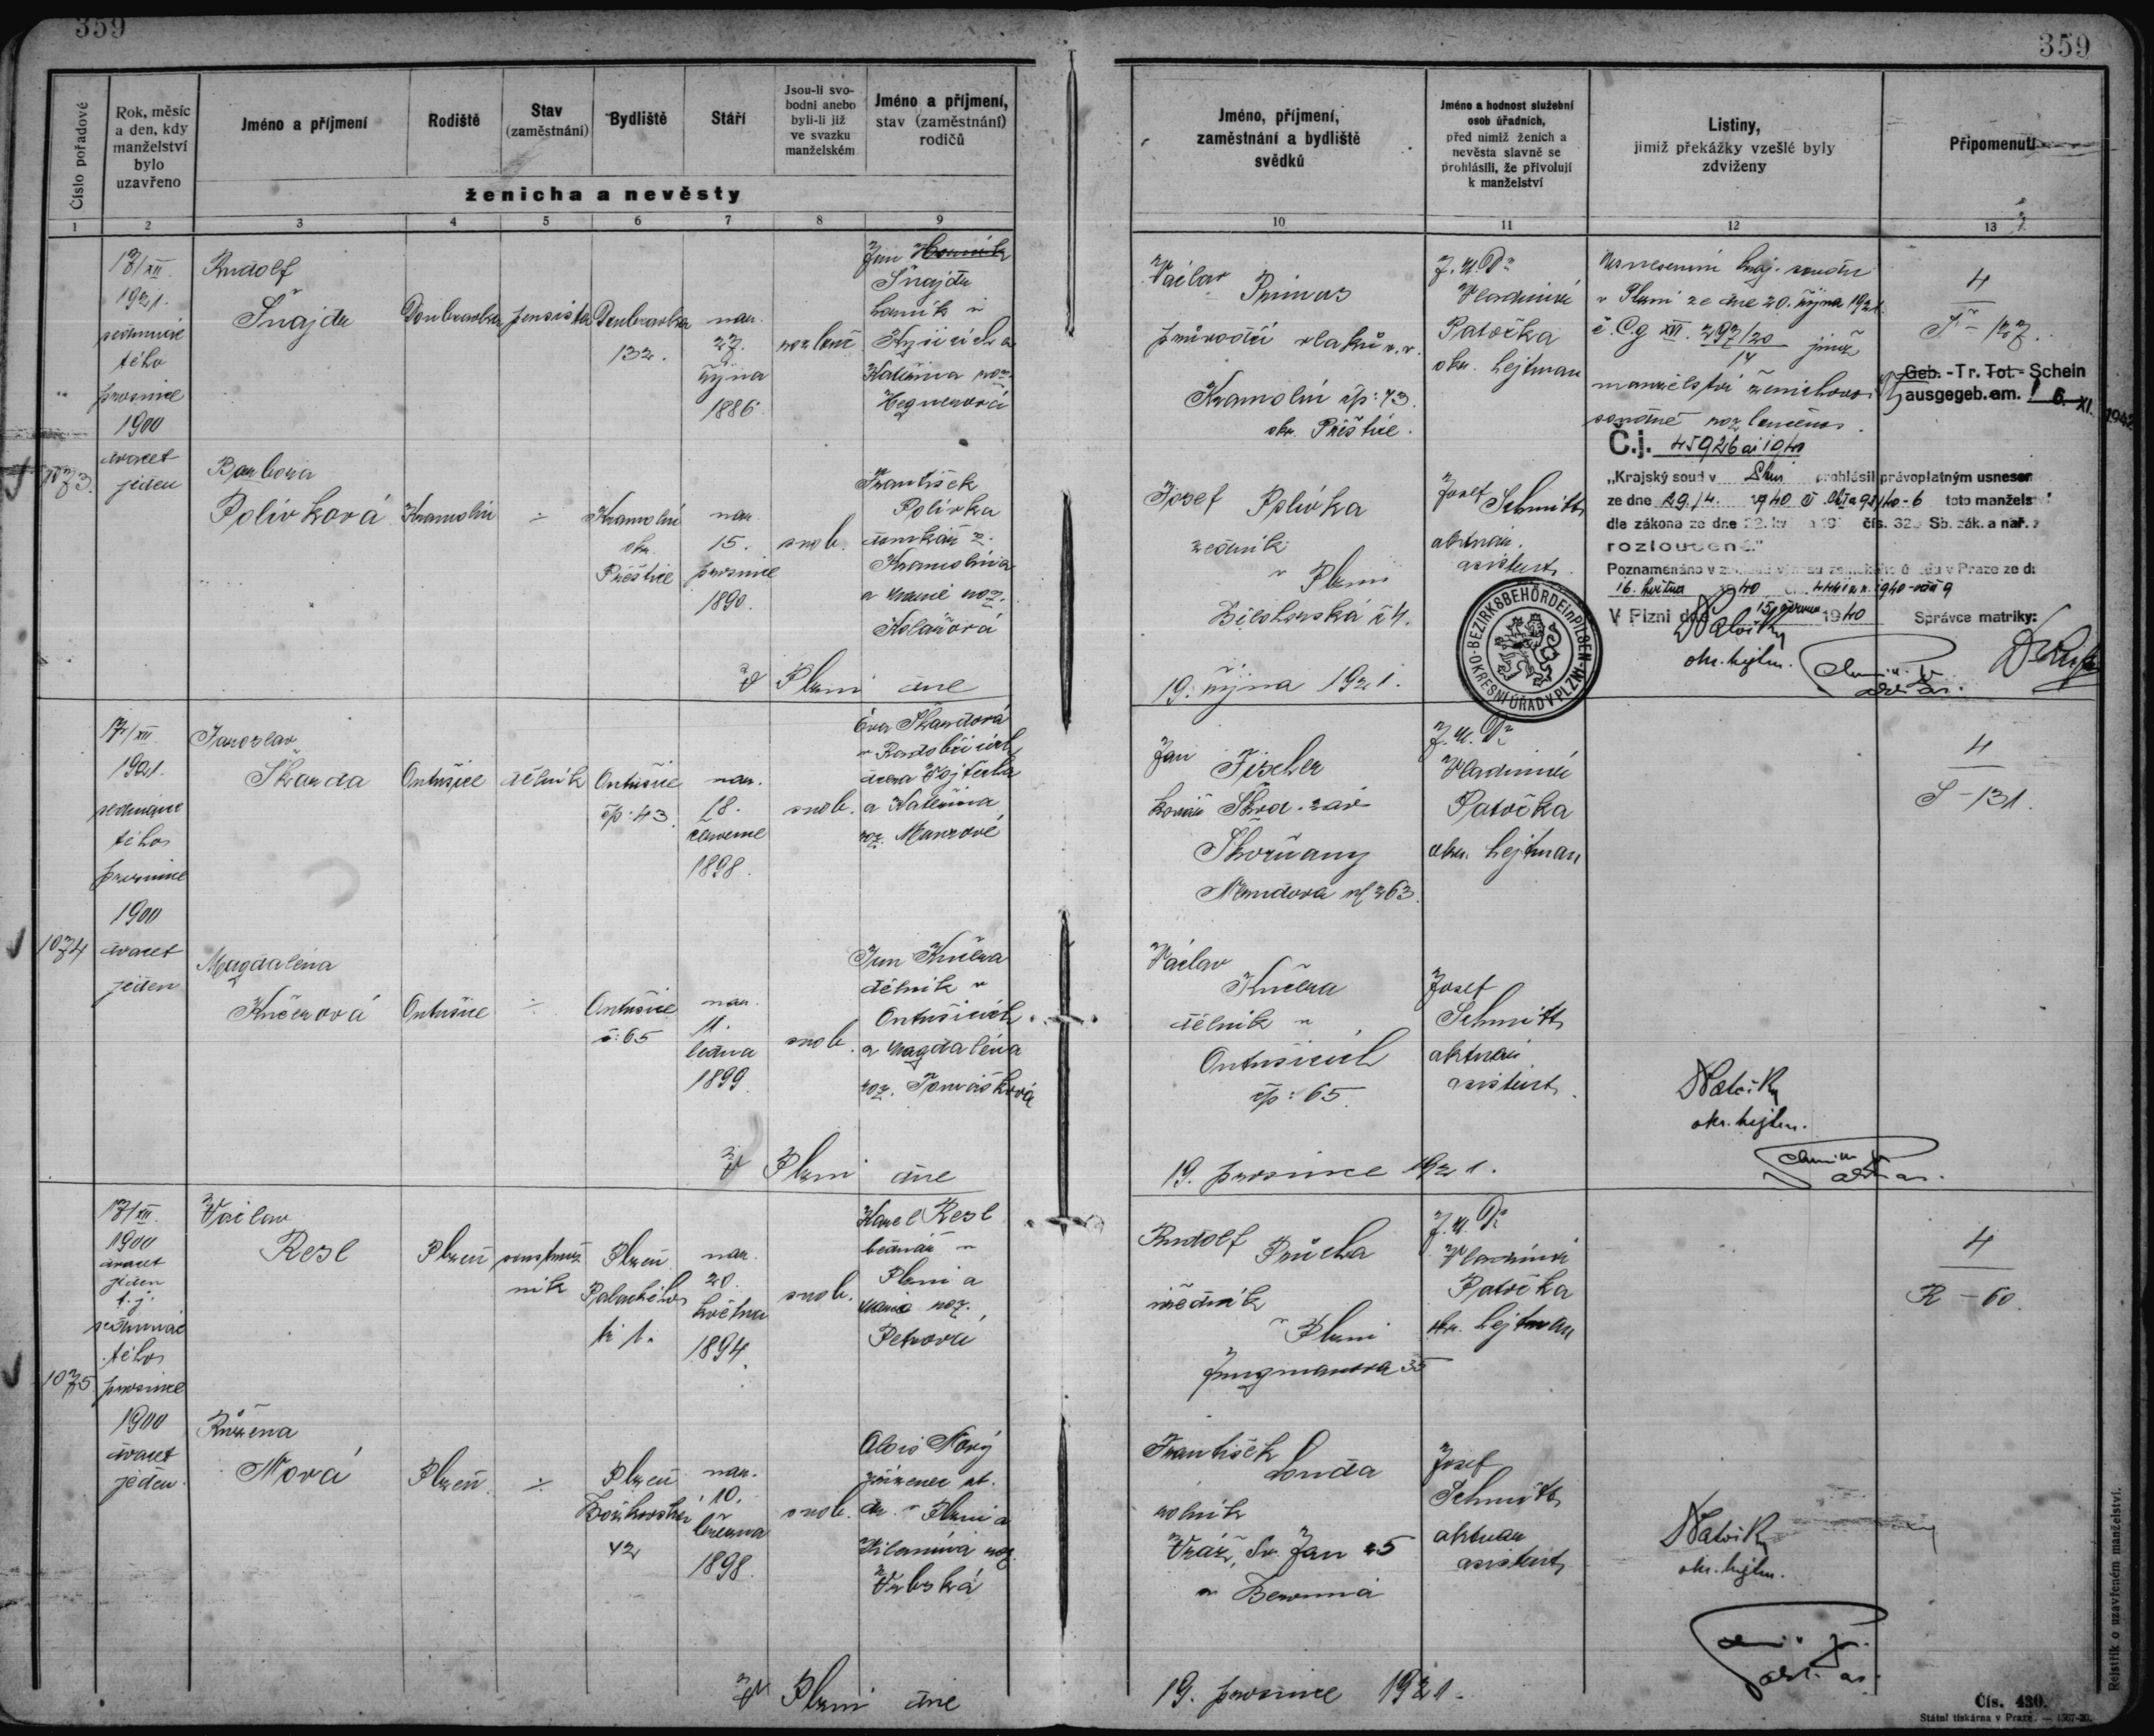 359
359
Číslo pořadové
Rok, měsíc
a den, kdy
manželství
bylo
uzavřeno
Jméno a příjmení
Rodiště
Stav
(zaměstnání)
Bydliště
Stáří
Jsou-li svo-
bodni anebo
byli-li již
ve svazku
manželském
Jméno a příjmení,
stav (zaměstnání)
rodičů
ženicha a nevěsty
1 2 3 4 5 6 7 8 9
Jméno, příjmení,
zaměstnání a bydliště
svědků
Jméno a hodnost služební
osob úřadních,
před nimiž ženich a
nevěsta slavně se
prohlásili, že přivolují
k manželství
Listiny,
jimiž překážky vzešlé byly
zdviženy
Připomenutí
10 11 12 13
1073.
17/XII.
1921.
sedmnác
tého
prosince
1900
dvacet
jeden
Rudolf
Šnajdr
Doubravka
pensista
Doubravka
132.
nar.
27.
října
1886.
rozlouč.
Jan
Šnajdr
horník v
Kateřina roz.
Hegnerová
Barbora
Polívková
Kramolín
÷
Kramolín
okr.
Přeštice
nar.
15.
prosince
1890.
svob.
František
Polívka
domkář z
Kramolína
a Marie roz.
Kolářová
V Plzni dne
19. října 1921.
Václav
Primas
průvodčí vlaků v.v.
Kramolín čp: 73.
okr. Přeštice.
J.U.Dr
Vladimír
Patočka
okr. hejtman
Usnesením kraj. soudu
v Plzni ze dne 20. října 1921
č. C.g XVII. 297/20
14
jímž
manželství ženichovo
soudně rozloučeno.
4
Š - 127.
Geb. -Tr. Tot- Schein
ausgegeb. am. 6. XI. 1942
Josef Polívka
zedník
v Plzni
Bělohorská č 4.
Josef Schmitt
aktuár.
asistent
Č.j. 45926 ai 1940
„Krajský soud v Plzni prohlásil právoplatným usnesen
ze dne 29./4. 1940 č toto manžels
dle zákona ze dne 22. čís. 320 Sb. zák. a nař. z
rozloučené."
Poznamenáno v Praze ze d
16. května 1940
V Plzni dne 15. června 1940 Správce matriky:
Patočka
okr. hejtm.
OKRESNÍ ÚŘAD V PLZNI · BEZIRKSBEHÖRDE in PILSEN
1074
17/XII.
1921.
sedmnác
tého
prosince
1900
dvacet
jeden
Jaroslav
Škarda
Ontušice
dělník
Ontušice
čp: 43.
nar.
28.
července
1898.
svob.
Eva Škardová
v Radobčicích
dcera Vojtěcha
a Kateřina
roz. Manzové
Magdalena
Kučerová
Ontušice
÷
Ontušice
č: 65
nar.
11.
ledna
1899.
svob.
Jan Kučera
dělník v
Ontušicích
a Magdaléna
roz. Tomášková
V Plzni dne
19. prosince 1921.
Jan
Fischer
kovář Škod. záv.
Škvrňany
Mandova ul 263.
J.U.Dr
Vladimír
Patočka
okr. hejtman
4
Š - 131.
Václav
Kučera
dělník v
Ontušicích
čp: 65.
Josef
Schmitt
aktuár
asistent
Patočka
okr. hejtm.
1075
17/XII.
1900
dvacet
jeden
t.j.
sedmnác
tého
prosince
1900
dvacet
jeden
Václav
Resl
Plzeň
Plzeň
Palackého
tř 1.
nar.
20.
května
1894.
svob.
Karel Resl
bednář v
Plzni a
Marie roz.
Petrová
Růžena
Nová
Plzeň
÷
Plzeň
Božkovská
42
nar.
10.
března
1898.
svob.
Alois Nový
zřízenec st.
dr. v Plzni a
Vilemína roz.
Vrbská
V Plzni dne
19. prosince 1921.
Rudolf
Průcha
úředník
v Plzni
Jungmanova 35
J.U.Dr
Vladimír
Patočka
okr. hejtman
4
R - 60.
František
Louda
rolník
Vráž, Sv. Jan 25
u Berouna
Josef
Schmitt
aktuár
asistent
Patočka
okr. hejtm.
Rejstřík o uzavřeném manželství.
Čís. 430.
Státní tiskárna v Praze.